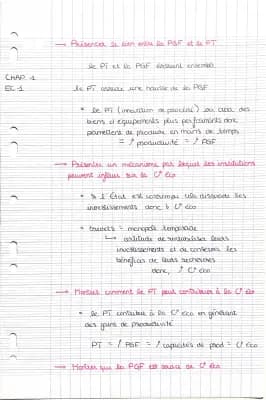 → Présenter le lien entre la PGF et le PT
Le PT et la PGF évoluent ensemble
CHAP. 1
EC 1
Le PT associe une hausse de la PGF
* Le PT (innovation de procédé) va créer des
biens d'équipements plus performants donc
permettent de produire en moins de temps
= ↗ productivité = ↗ PGF
→ Présenter un mécanisme par lequel les institutions
peuvent influer sur la C° éco
* Si l'État est corrompu cela dissuade les
investissements donc ↓ C° éco
* brevets = monopole temporaire
↳ certitude de rentabiliser leurs
investissements et de conserver les
bénéfices de leurs recherches
donc, ↗ C° éco
→ Montrer comment le PT peut contribuer à la C° éco
* Le PT contribue à la C° éco en générant
des gains de productivité
PT = ↗ PGF = ↗ capacités de prod = C° éco
→ Montrer que la PGF est source de C° éco